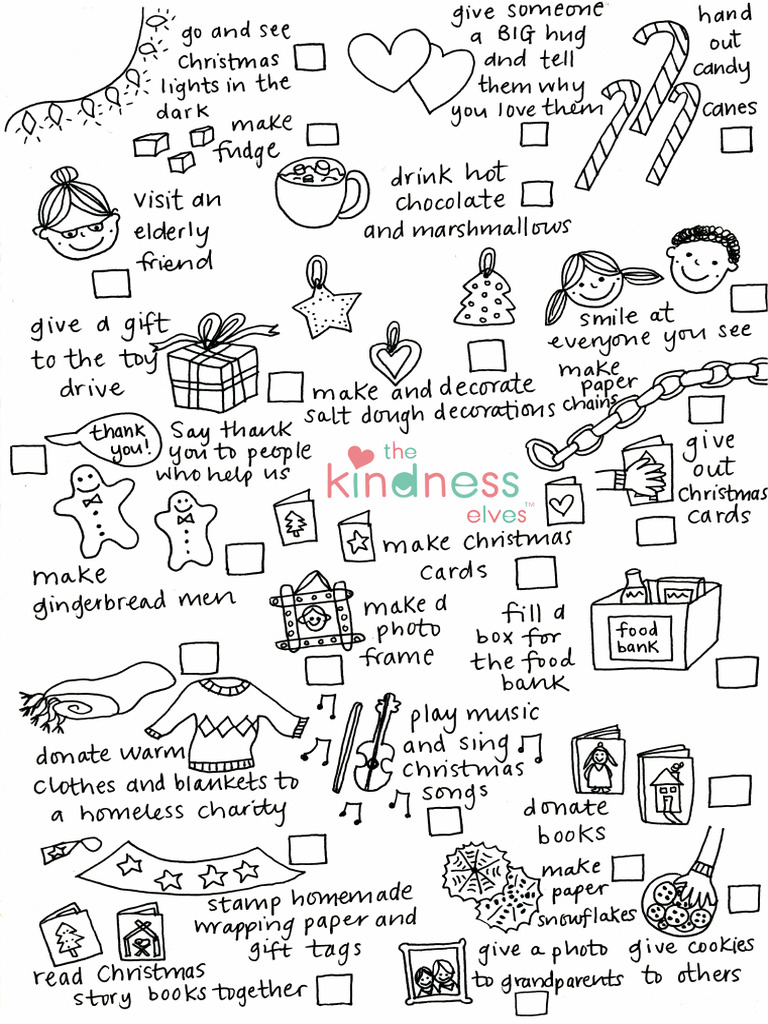 go and see
Christmas
lights in the
dark
give someone
a BIG hug
and tell
them why
you love them
hand
out
candy
canes
make
fudge
drink hot
chocolate
and marshmallows
visit an
elderly
friend
smile at
everyone you see
give a gift
to the toy
drive
make and decorate
salt dough decorations
make
paper
chains
thank
you!
Say thank
you to people
who help us
the
kindness
elves™
give
out
Christmas
cards
make
gingerbread men
make Christmas
cards
make a
photo
frame
fill a
box for
the food
bank
food
bank
donate warm
clothes and blankets to
a homeless charity
play music
and sing
Christmas
songs
donate
books
stamp homemade
wrapping paper and
gift tags
make
paper
snowflakes
read Christmas
story books together
give a photo
to grandparents
give cookies
to others